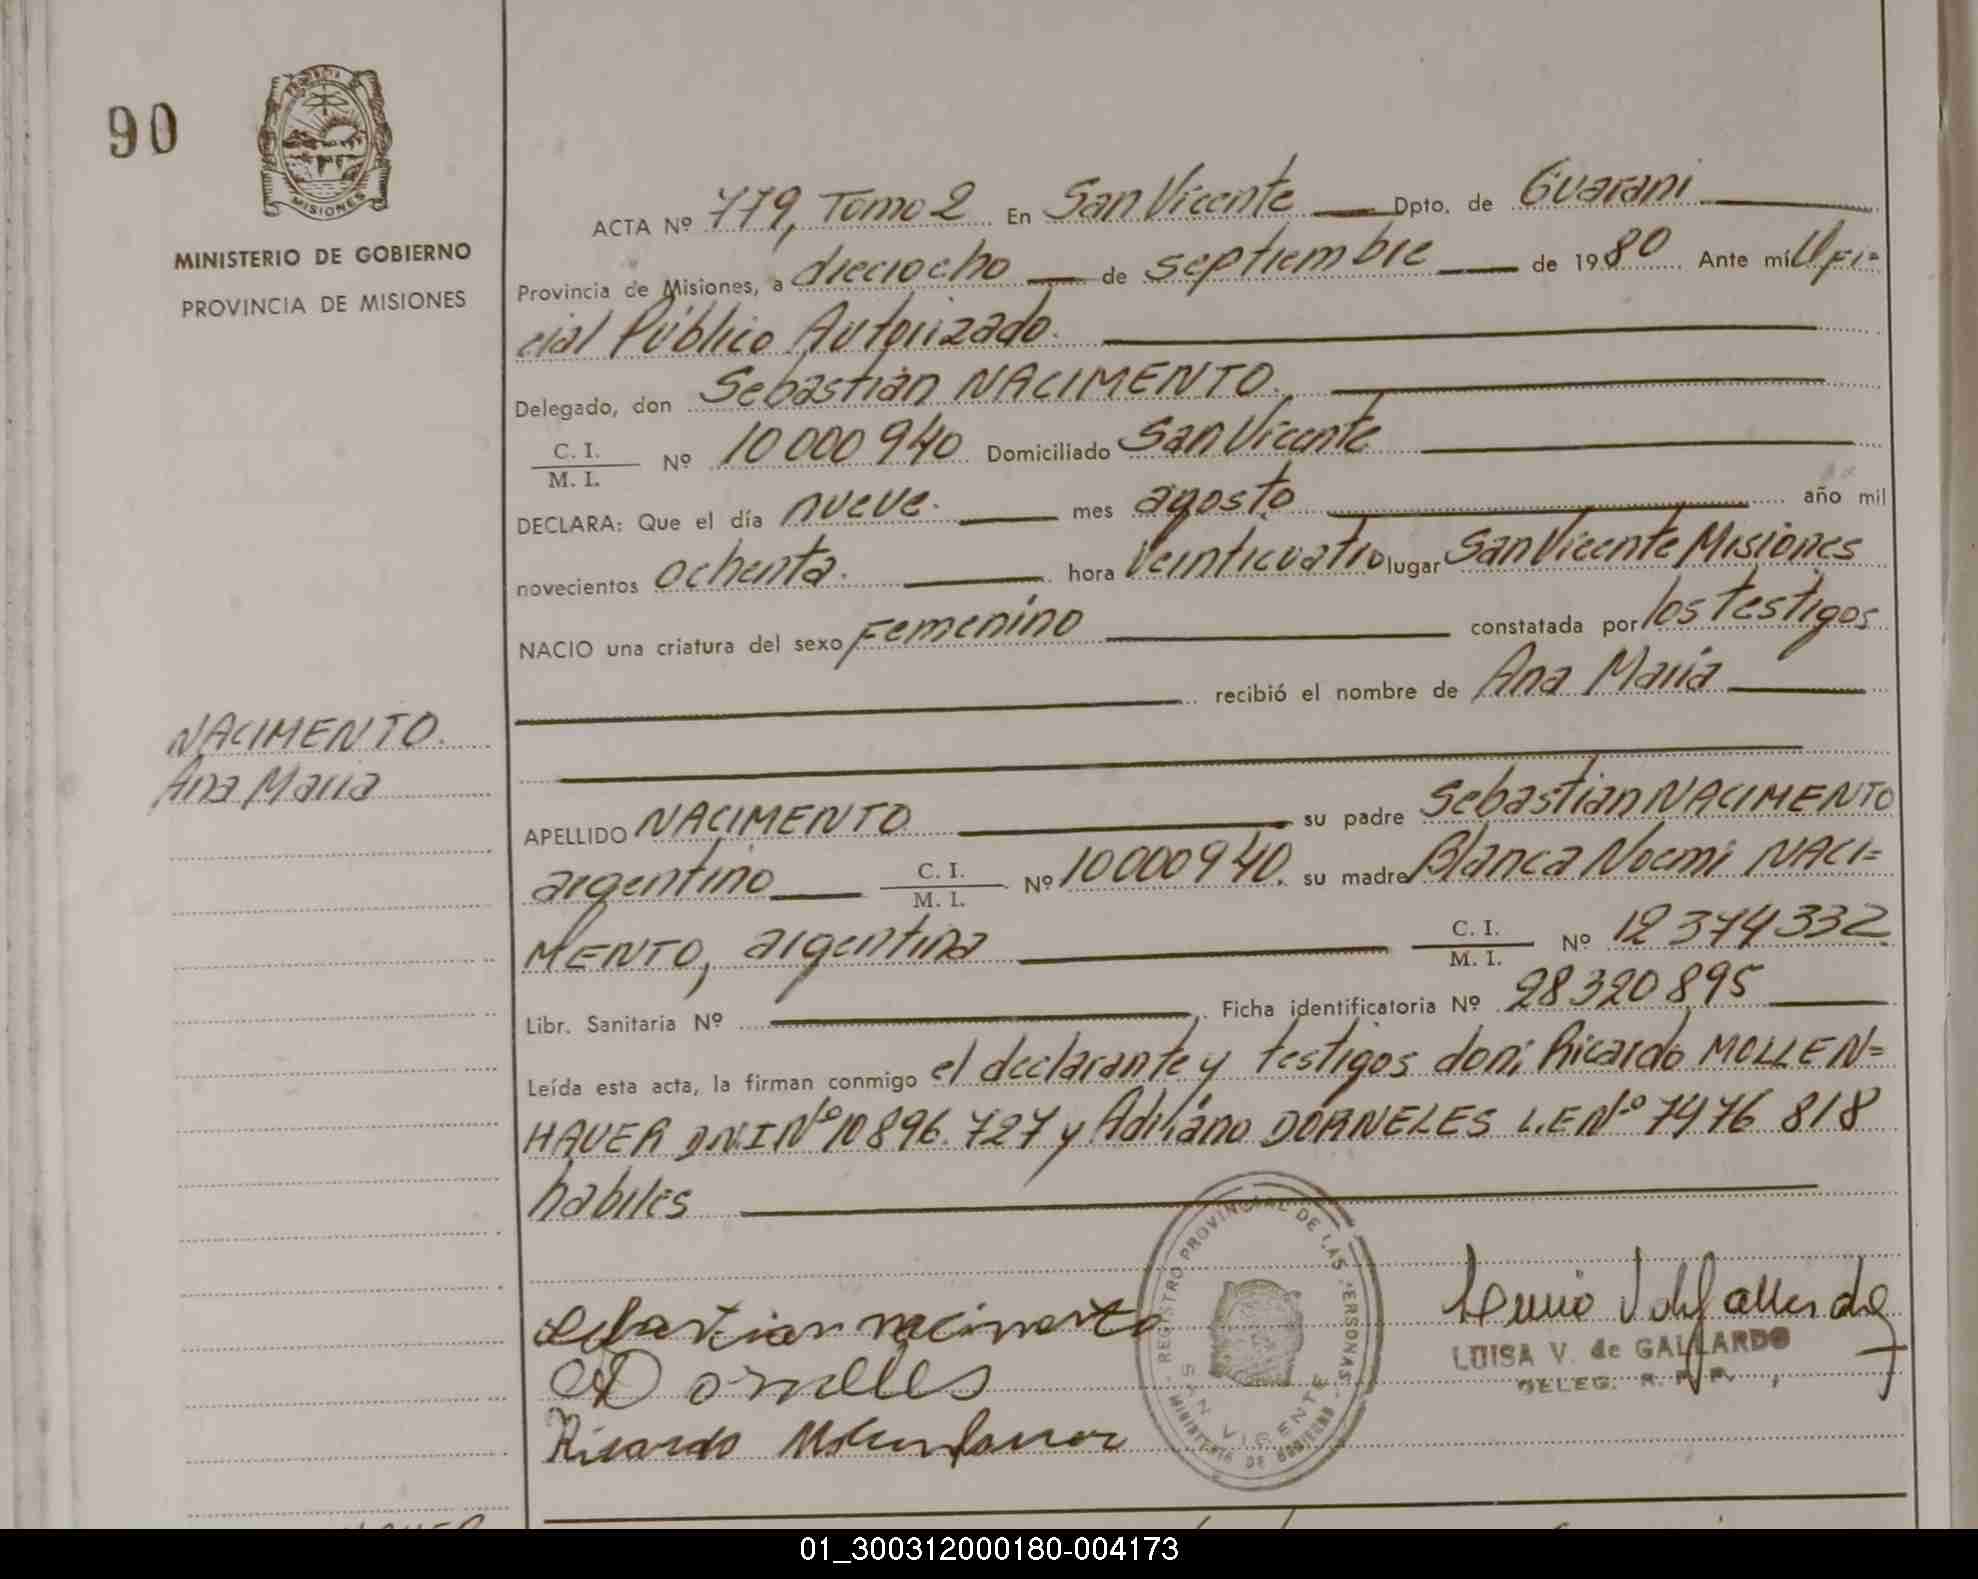 90
PROVINCIA
MISIONES
MINISTERIO DE GOBIERNO
PROVINCIA DE MISIONES
NACIMENTO.
Ana Maria
ACTA Nº 779, Tomo 2 En San Vicente Dpto. de Guarani
Provincia de Misiones, a dieciocho de septiembre de 1980 Ante mí Ofi=
cial Público Autorizado.
Delegado, don Sebastián NACIMENTO.
C. I.
M. I. Nº 10 000 940 Domiciliado San Vicente
DECLARA: Que el día nueve. mes agosto año mil
novecientos ochenta. hora veinticuatro lugar San Vicente Misiones
NACIO una criatura del sexo Femenino constatada por los testigos
recibió el nombre de Ana Maria
APELLIDO NACIMENTO su padre Sebastian NACIMENTO
argentino C. I.
M. I. Nº 10000940. su madre Blanca Noemi NACI=
MENTO, argentina C. I.
M. I. Nº 12 374 332
Libr. Sanitaria Nº Ficha identificatoria Nº 28 320 895
Leída esta acta, la firman conmigo el declarante y testigos don: Ricardo MOLLEN=
HAUER DNI Nº 10 896. 727 y Adiliano DORNELES L.E Nº 7476 818
habiles
Sebastian nacimento
A Dornelles
Ricardo
REGISTRO PROVINCIAL DE LAS PERSONAS
SAN VICENTE
MINISTERIO DE GOBIERNO
LUISA V. de GALLARDO
DELEG. R. P. P.
01_300312000180-004173